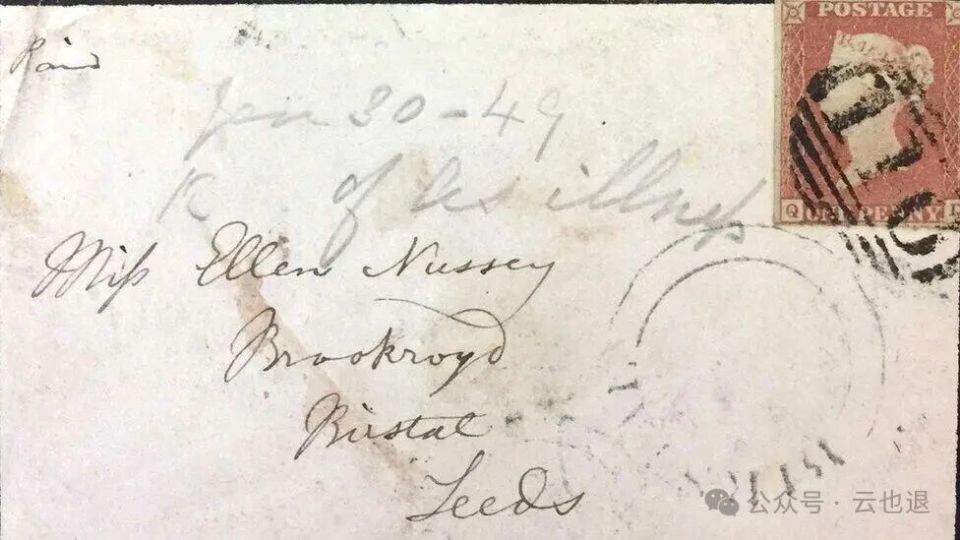 Paid
POSTAGE
Jan 30-49
of his illness
Q
ONE PENNY
Miss Ellen Nussey
Brookroyd
Birstal
Leeds
公众号 · 云也退